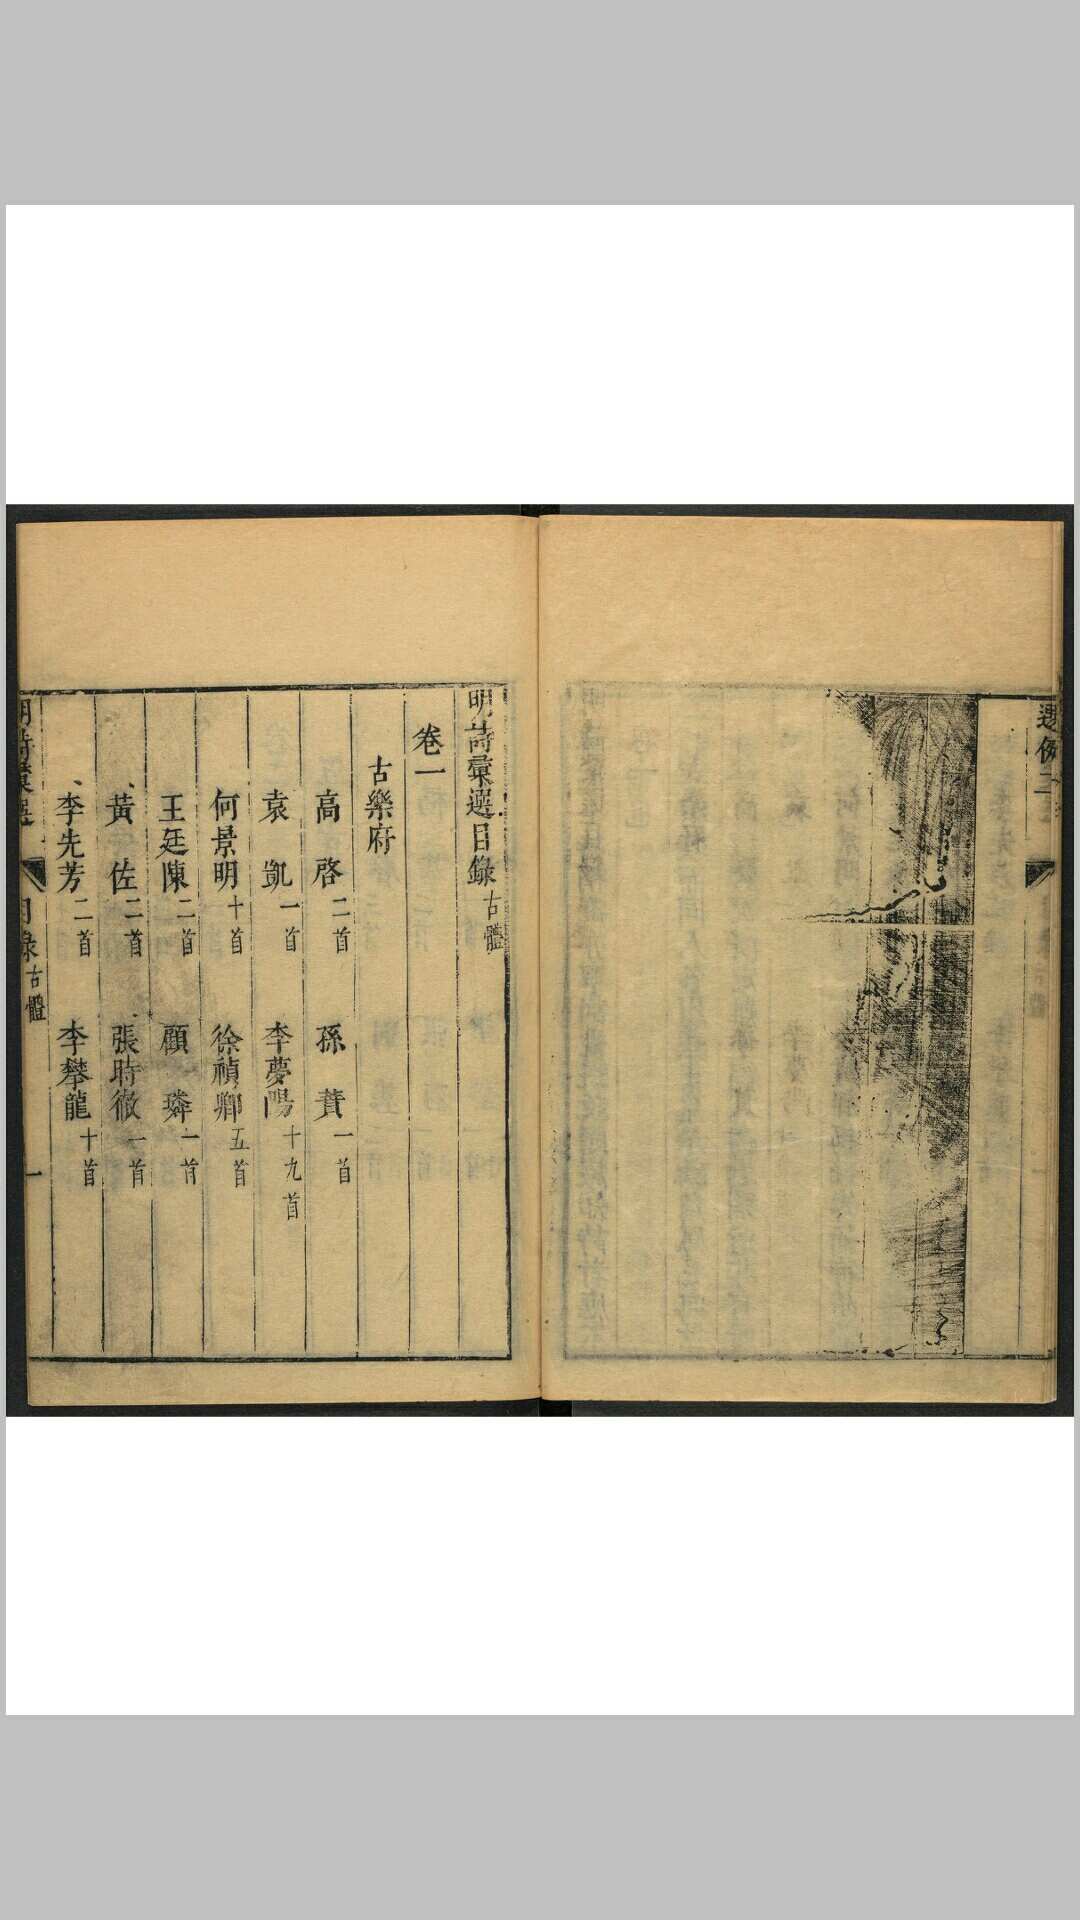 選例二
明詩彙選目錄 古體
卷一
古樂府
高啓 二首 孫蕡 一首
袁凱 一首 李夢陽 十九首
何景明 十首 徐禎卿 五首
王廷陳 二首 顧璘 一首
黃佐 二首 張時徹 一首
李先芳 二首 李攀龍 十首
明詩彙選 目錄 古體 一